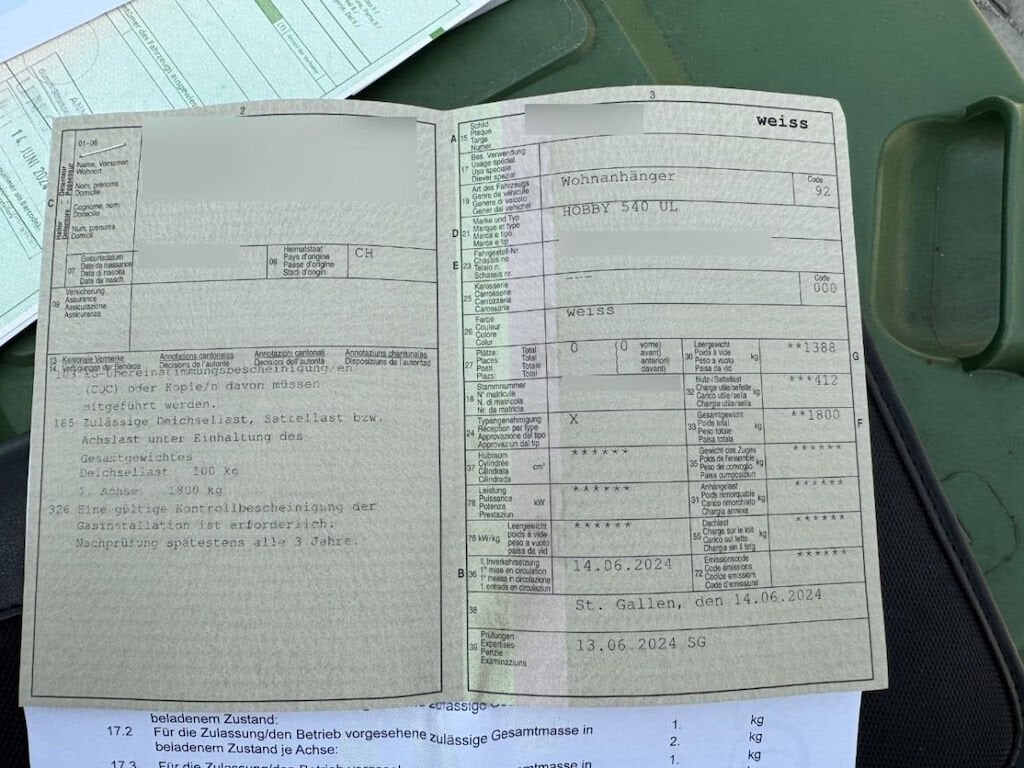 14. JUNI 2024
2
01-06
C
Halter – Détenteur
Name, Vornamen
Wohnort
Nom, prénoms
Domicile
Cognome, nomi
Domicilio
Num, prenums
Domicil
07
Geburtsdatum
Date de naissance
Data di nascita
Data da nasch.
06
Heimatstaat
Pays d'origine
Paese d'origine
Stadi d'origin
CH
09
Versicherung
Assurance
Assicurazione
Assicuranza
13
14
Kantonale Vermerke
Verfügungen der Behörde
Annotations cantonales
Décisions de l'autorité
Annotazioni cantonali
Decisioni dell'autorità
Annotaziuns chantunalas
Disposiziuns da l'autoritad
EG-Übereinstimmungsbescheinigung/en
(COC) oder Kopie/n davon müssen
mitgeführt werden.
185 Zulässige Deichsellast, Sattellast bzw.
Achslast unter Einhaltung des
Gesamtgewichtes
Deichsellast 100 kg
1. Achse 1800 kg
326 Eine gültige Kontrollbescheinigung der
Gasinstallation ist erforderlich.
Nachprüfung spätestens alle 3 Jahre.
3
A 15
Schild
Plaque
Targa
Numer
weiss
17
Bes. Verwendung
Usage spécial
Uso speciale
Diever spezial
19
Art des Fahrzeugs
Genre de véhicule
Genere di veicolo
Gener dal vehichel
Wohnanhänger
Code
92
D 21
Marke und Typ
Marque et type
Marca e tipo
Marca e tip
HOBBY 540 UL
E 23
Fahrgestell-Nr.
Châssis no
Telaio n.
Schassis nr.
25
Karosserie
Carrosserie
Carrozzeria
Carossaria
---
Code
000
26
Farbe
Couleur
Colore
Colur
weiss
27
Plätze:
Places:
Posti:
Plazs:
Total
Total
Totale
Total
0
(0 vorne)
avant)
anteriori)
davant)
30
Leergewicht
Poids à vide
Peso a vuoto
Paisa da vid
kg
**1388
G
18
Stammnummer
N° matricule
N. di matricola
Nr. da matricla
32
Nutz-/Sattellast
Charge utile/sellette
Carico utile/sella
Chargia utila/sella
kg
***412
24
Typengenehmigung
Réception par type
Approvazione del tipo
Approvaziun dal tip
X
33
Gesamtgewicht
Poids total
Peso totale
Paisa totala
kg
**1800
F
37
Hubraum
Cylindrée
Cilindrata
Cilindrada
cm³
******
35
Gewicht des Zuges
Poids de l'ensemble
Peso del convoglio
Paisa cumposiziun
kg
******
76
Leistung
Puissance
Potenza
Prestaziun
kW
******
31
Anhängelast
Poids remorquable
Carico rimorchiato
Chargia annexa
kg
******
78 kW/kg
Leergewicht
poids à vide
peso a vuoto
paisa da vid
******
55
Dachlast
Charge sur le toit
Carico sul tetto
Chargia sin il tetg
kg
******
B 36
1. Inverkehrsetzung
1re mise en circulation
1a messa in circolazione
1. entrada en circulaziun
14.06.2024
72
Emissionscode
Code émissions
Codice emissioni
Code d'emissiuns
******
38
St. Gallen, den 14.06.2024
39
Prüfungen
Expertises
Perizie
Examinaziuns
13.06.2024 SG
beladenem Zustand:
1.
kg
17.2 Für die Zulassung/den Betrieb vorgesehene zulässige Gesamtmasse in
beladenem Zustand je Achse:
2.
kg
17.3
1.
kg